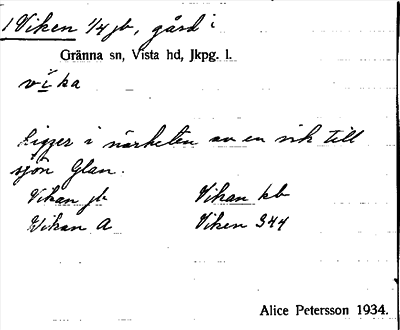 1 Viken 1/4 jb, gård i
Gränna sn, Vista hd, Jkpg. l.
vi̱ka
Ligger i närheten av en vik till
sjön Glan.
Vikan jb Vikan kb
Wikan A Viken 344
Alice Petersson 1934.